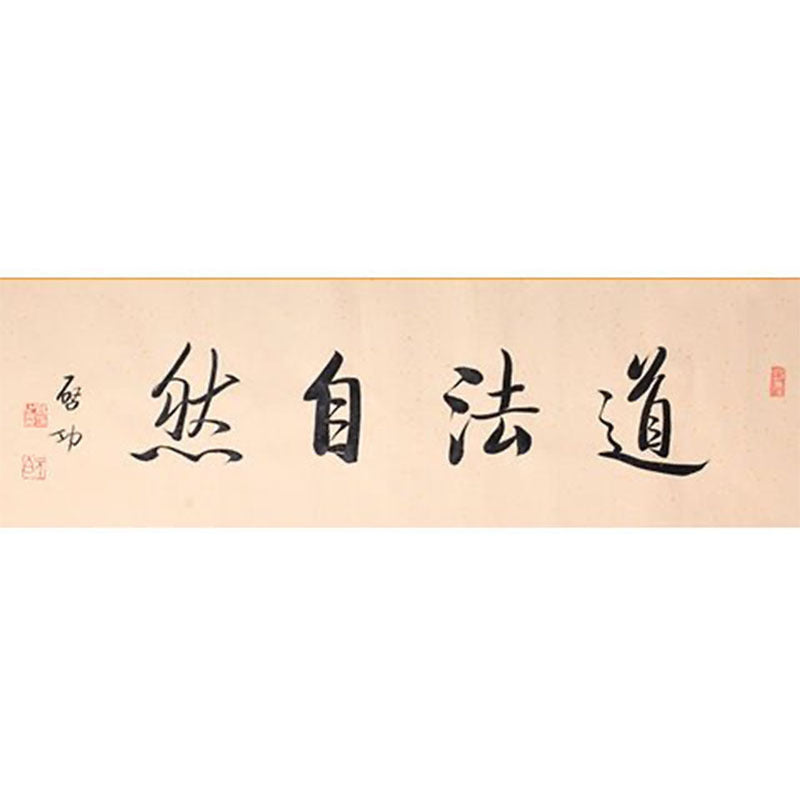 道法自然
启功